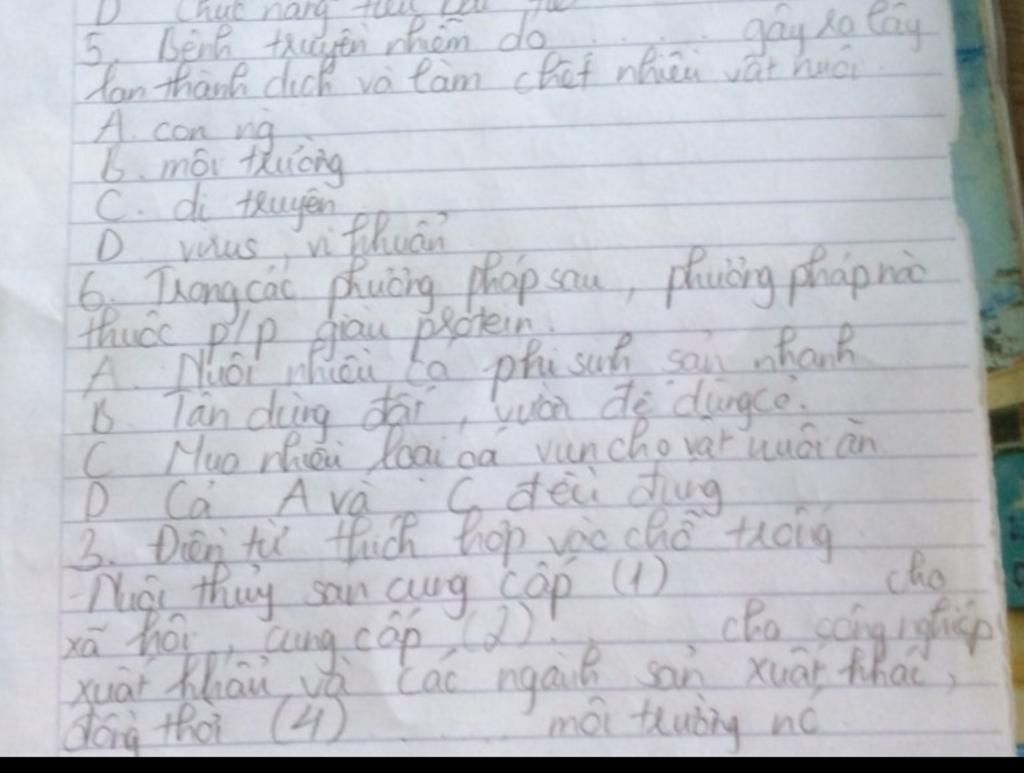 D Chức năng
5. Bệnh truyền nhiễm do ........ gây ra lây
lan thành dịch và làm chết nhiều vật nuôi
A. con ng
B. môi trường
C. di truyền
D virus, vi khuẩn
6. Trong các phường pháp sau, phường pháp nào
thuộc p/p giàu protein.
A. Nuôi nhiều cá phi sinh sản nhanh
B Tân dùng đất, vườn để dùng cỏ.
C Mua nhiều loại cá vụn cho vật nuôi ăn
D Cả A và C đều đúng
3. Điền từ thích hợp vào chỗ trống
- Nuôi thủy sản cung cấp (1) cho
xã hội, cung cấp (2) .. cho công nghiệp
xuất khẩu và các ngành sản xuất khác,
đồng thời (4) môi trường nc